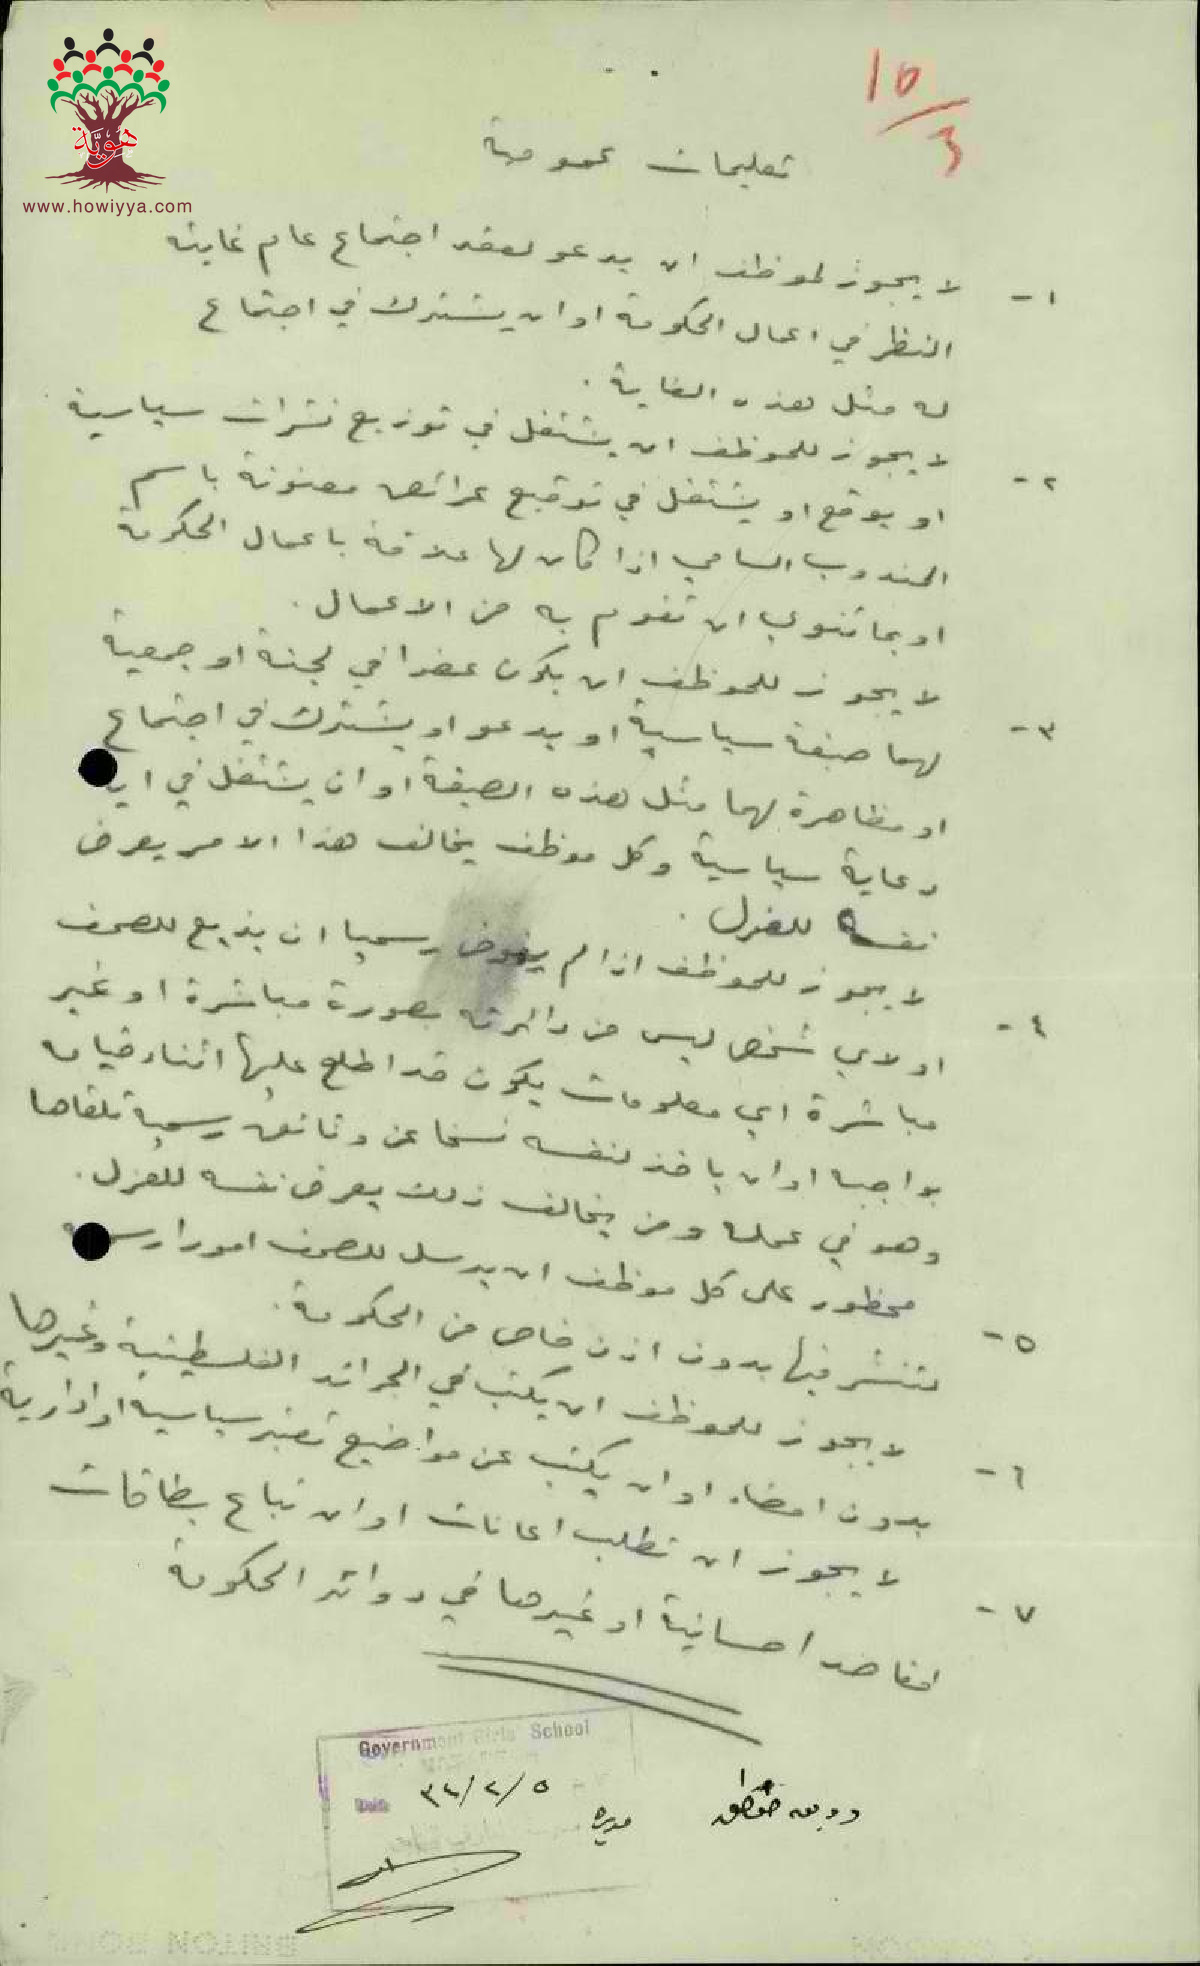 هوية
www.howiyya.com
10/3
تعليمات عمومية
١- لا يجوز لموظف ان يدعو لعقد اجتماع عام غايته
النظر في اعمال الحكومة او ان يشترك في اجتماع
له مثل هذه الغاية .
٢- لا يجوز للموظف ان يشتغل في توزيع نشرات سياسية
او يوقع او يشتغل في توقيع عرائض معنونة باسم
المندوب السامي اذا كان لها علاقة باعمال الحكومة
او بما تنوي ان تقوم به من الاعمال .
٣- لا يجوز للموظف ان يكون عضوا في لجنة او جمعية
لهما صبغة سياسية او يدعو او يشترك في اجتماع
او مظاهرة لهما مثل هذه الصبغة او ان يشتغل في اي
دعاية سياسية وكل موظف يخالف هذا الامر يعرض
نفسه للعزل .
٤- لا يجوز للموظف اذا لم يفوض رسميا ان يذيع للصحف
او لاي شخص ليس من دائرته بصورة مباشرة او غير
مباشرة اي معلومات يكون قد اطلع عليها اثناء قيامه
بواجبه او ان ياخذ لنفسه نسخا عن وثائق رسمية تلقاها
وهو في عمله ومن يخالف ذلك يعرض نفسه للعزل .
٥- محظور على كل موظف ان يرسل للصحف امورا رسمية
لتنشر فيها بدون اذن خاص من الحكومة .
٦- لا يجوز للموظف ان يكتب في الجرائد الفلسطينية وغيرها
بدون امضاء او ان يكتب عن مواضيع تعتبر سياسية او ادارية
٧- لا يجوز ان تطلب اعانات او ان تباع بطاقات
لمقاصد احسانية او غيرها في دوائر الحكومة
Government Girls' School
Date ٥/٢/٣٤
مديرة